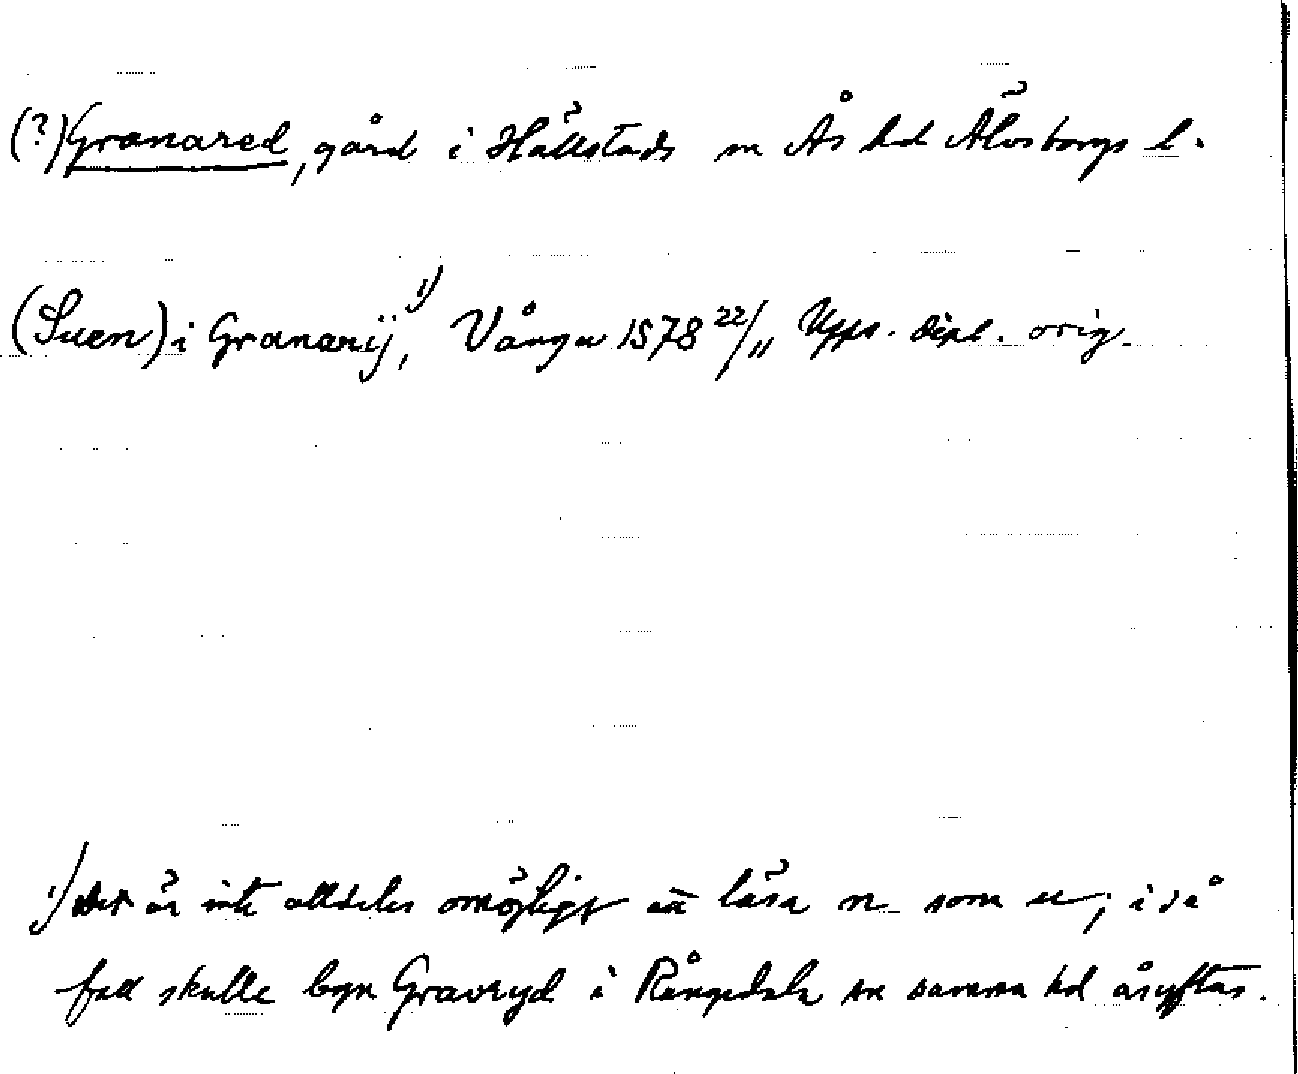 (?) Granared, gård i Hällstads sn Ås hd Älvsborgs l.
(Suen) i Granarÿ,¹⁾ Vånga 1578 22/11 Upps. dipl. orig.
¹⁾ det är inte alldeles omöjligt att läsa n som u; i så
fall skulle byn Gravryd i Rångedala sn samma hd åsyftas.